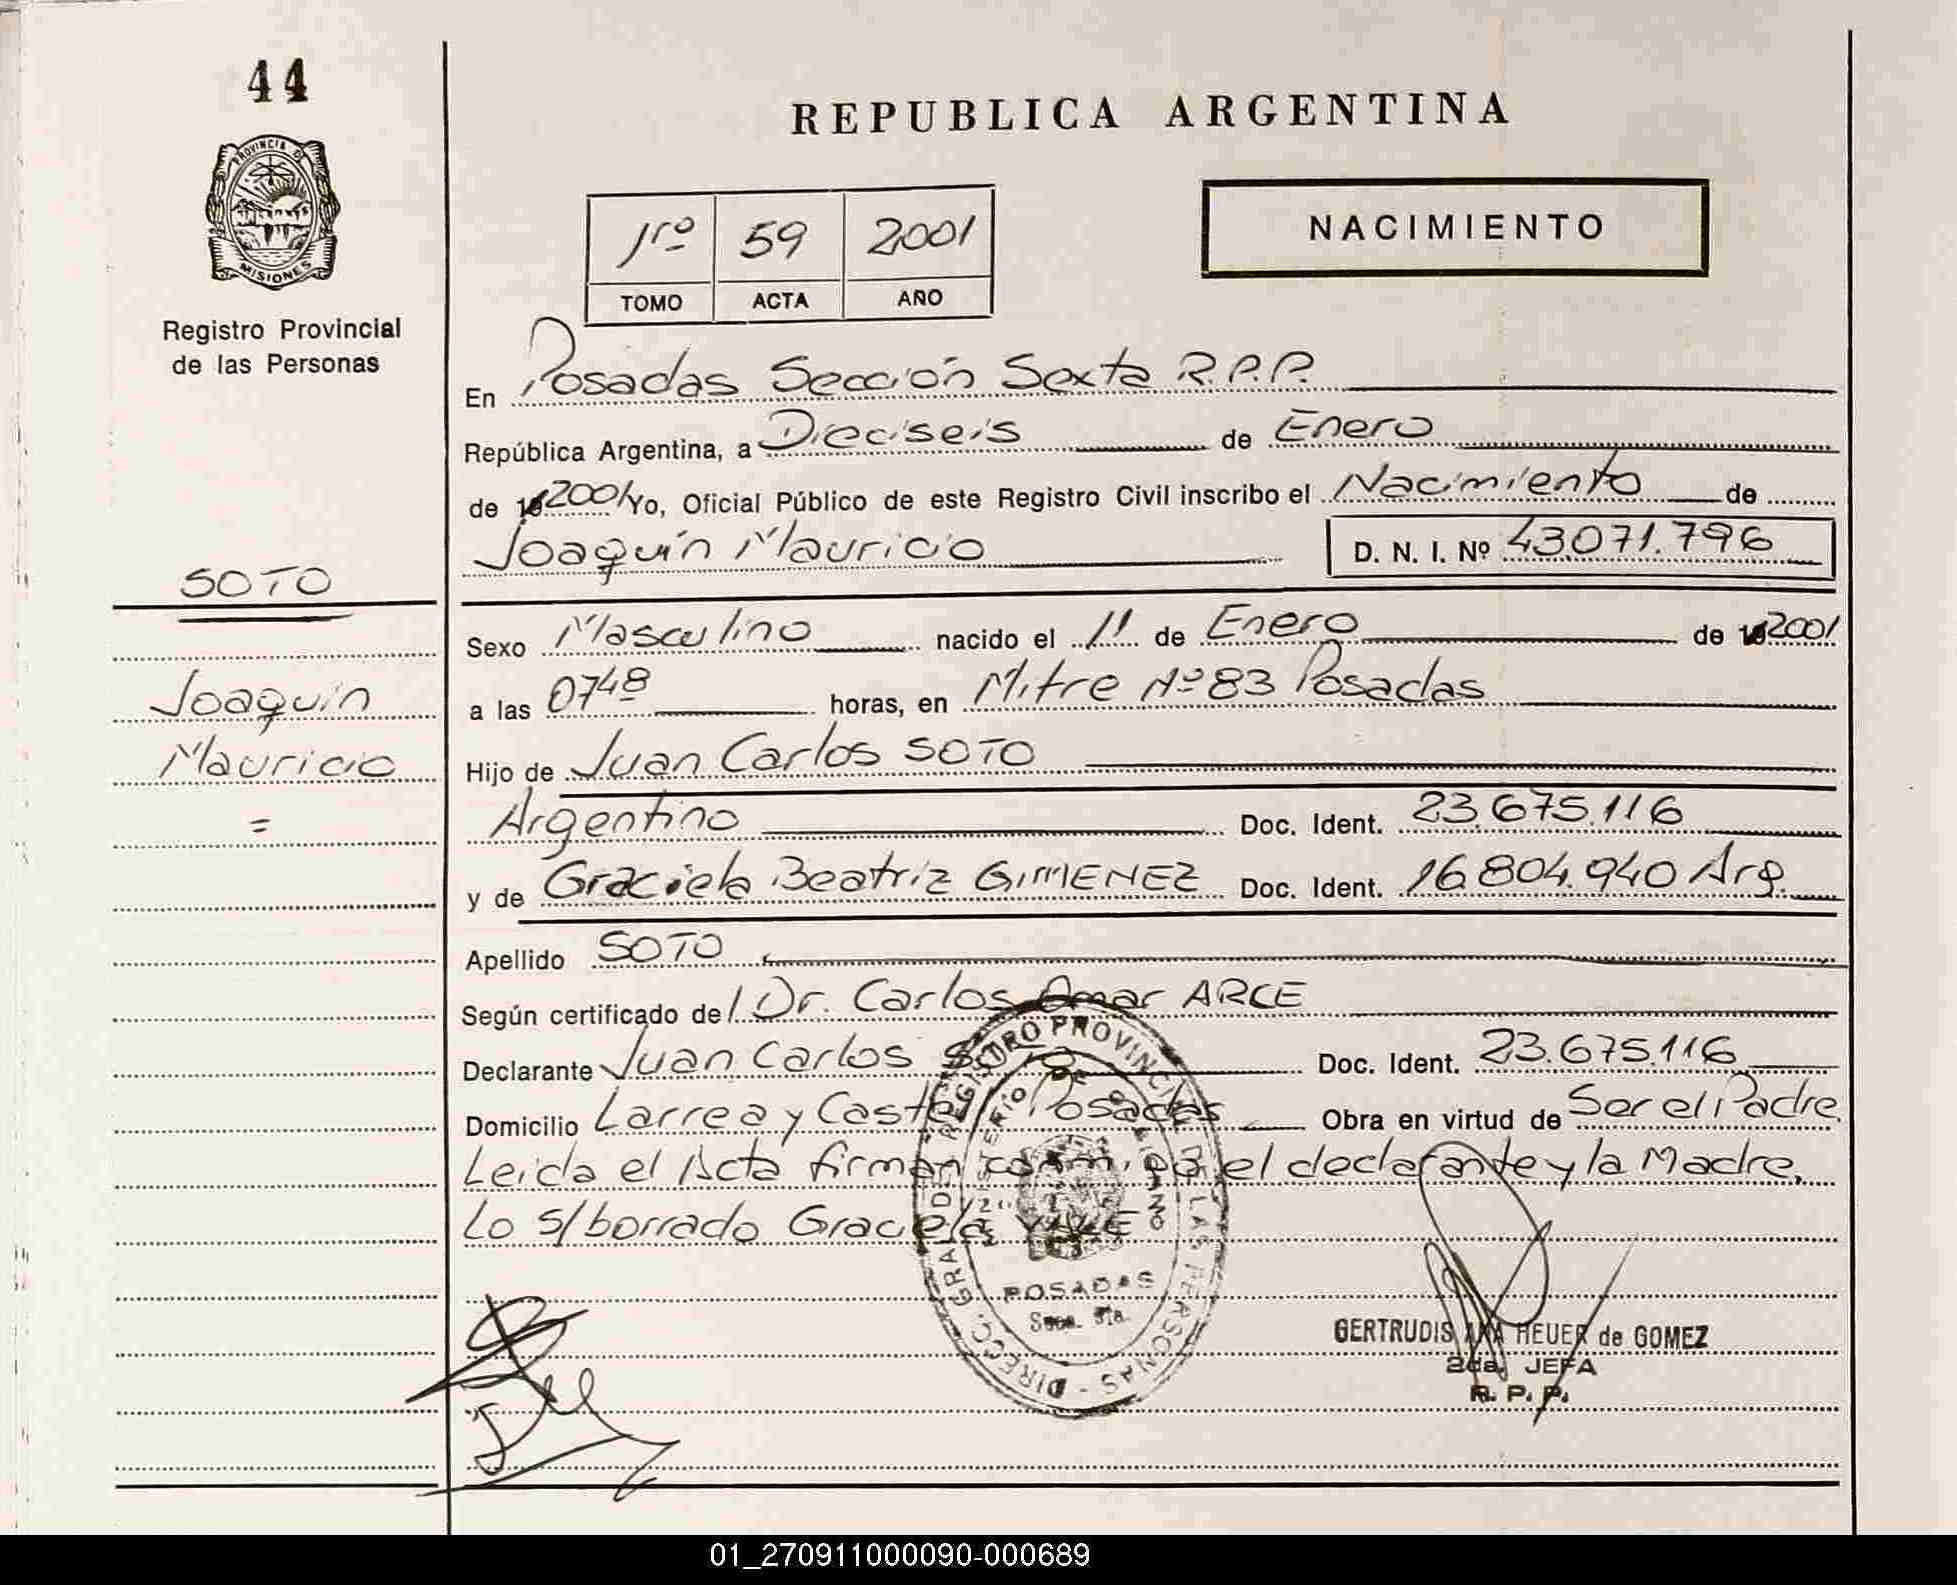 44
REPUBLICA ARGENTINA
PROVINCIA DE
MISIONES
Registro Provincial
de las Personas
1ro 59 2001
TOMO ACTA AÑO
NACIMIENTO
En Posadas Sección Sexta R.P.P.
República Argentina, a Dieciseis de Enero
de 2001 Yo, Oficial Público de este Registro Civil inscribo el Nacimiento de
Joaquín Mauricio D. N. I. Nº 43.071.796
SOTO
Joaquín
Mauricio
=
Sexo Masculino nacido el 11 de Enero de 2001
a las 0748 horas, en Mitre Nº 83 Posadas
Hijo de Juan Carlos SOTO
Argentino Doc. Ident. 23.675.116
y de Graciela Beatriz GIMENEZ Doc. Ident. 16.804.940 Arg.
Apellido SOTO
Según certificado de l Dr. Carlos Omar ARCE
Declarante Juan Carlos SOTO Doc. Ident. 23.675.116
Domicilio Larrea y Posadas Obra en virtud de Ser el Padre
Leida el Acta firman el declarante y la Madre,
Lo s/borrado Graciela VALE
DIRECC. GRAL. DEL REGISTRO PROVINCIAL DE LAS PERSONAS
POSADAS
GERTRUDIS ANA HEUER de GOMEZ
2da. JEFA
R. P. P.
01_270911000090-000689